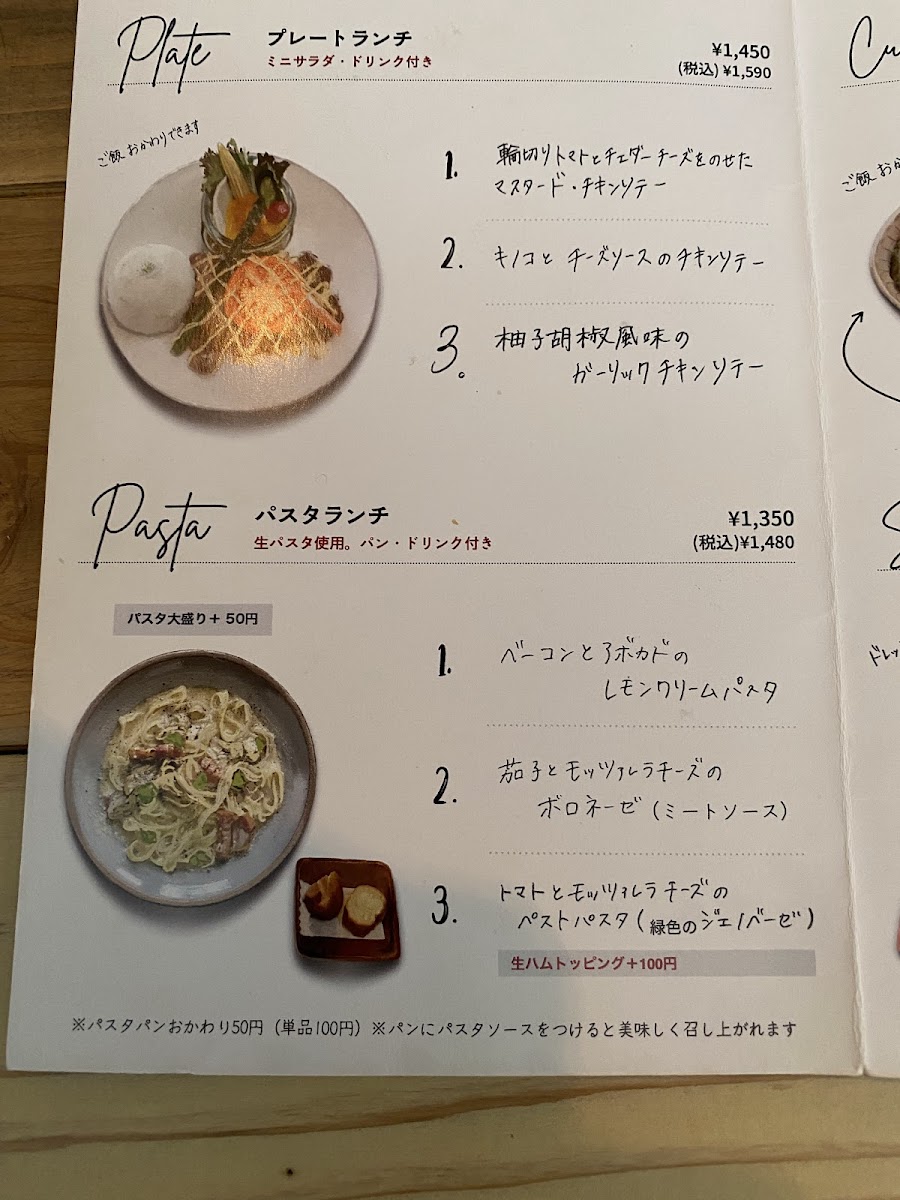 Plate
プレートランチ
ミニサラダ・ドリンク付き
¥1,450
(税込) ¥1,590
ご飯おかわりできます
1. 輪切りトマトとチェダーチーズをのせた
マスタード・チキンソテー
2. キノコと チーズソースのチキンソテー
3. 柚子胡椒風味の
ガーリックチキンソテー
Pasta
パスタランチ
生パスタ使用。パン・ドリンク付き
¥1,350
(税込)¥1,480
パスタ大盛り＋50円
1. ベーコンとアボカドの
レモンクリームパスタ
2. 茄子とモッツァレラチーズの
ボロネーゼ (ミートソース)
3. トマトとモッツァレラチーズの
ペストパスタ (緑色のジェノベーゼ)
生ハムトッピング＋100円
※パスタパンおかわり50円（単品100円）※パンにパスタソースをつけると美味しく召し上がれます
Cu
ご飯おか
ドレッ